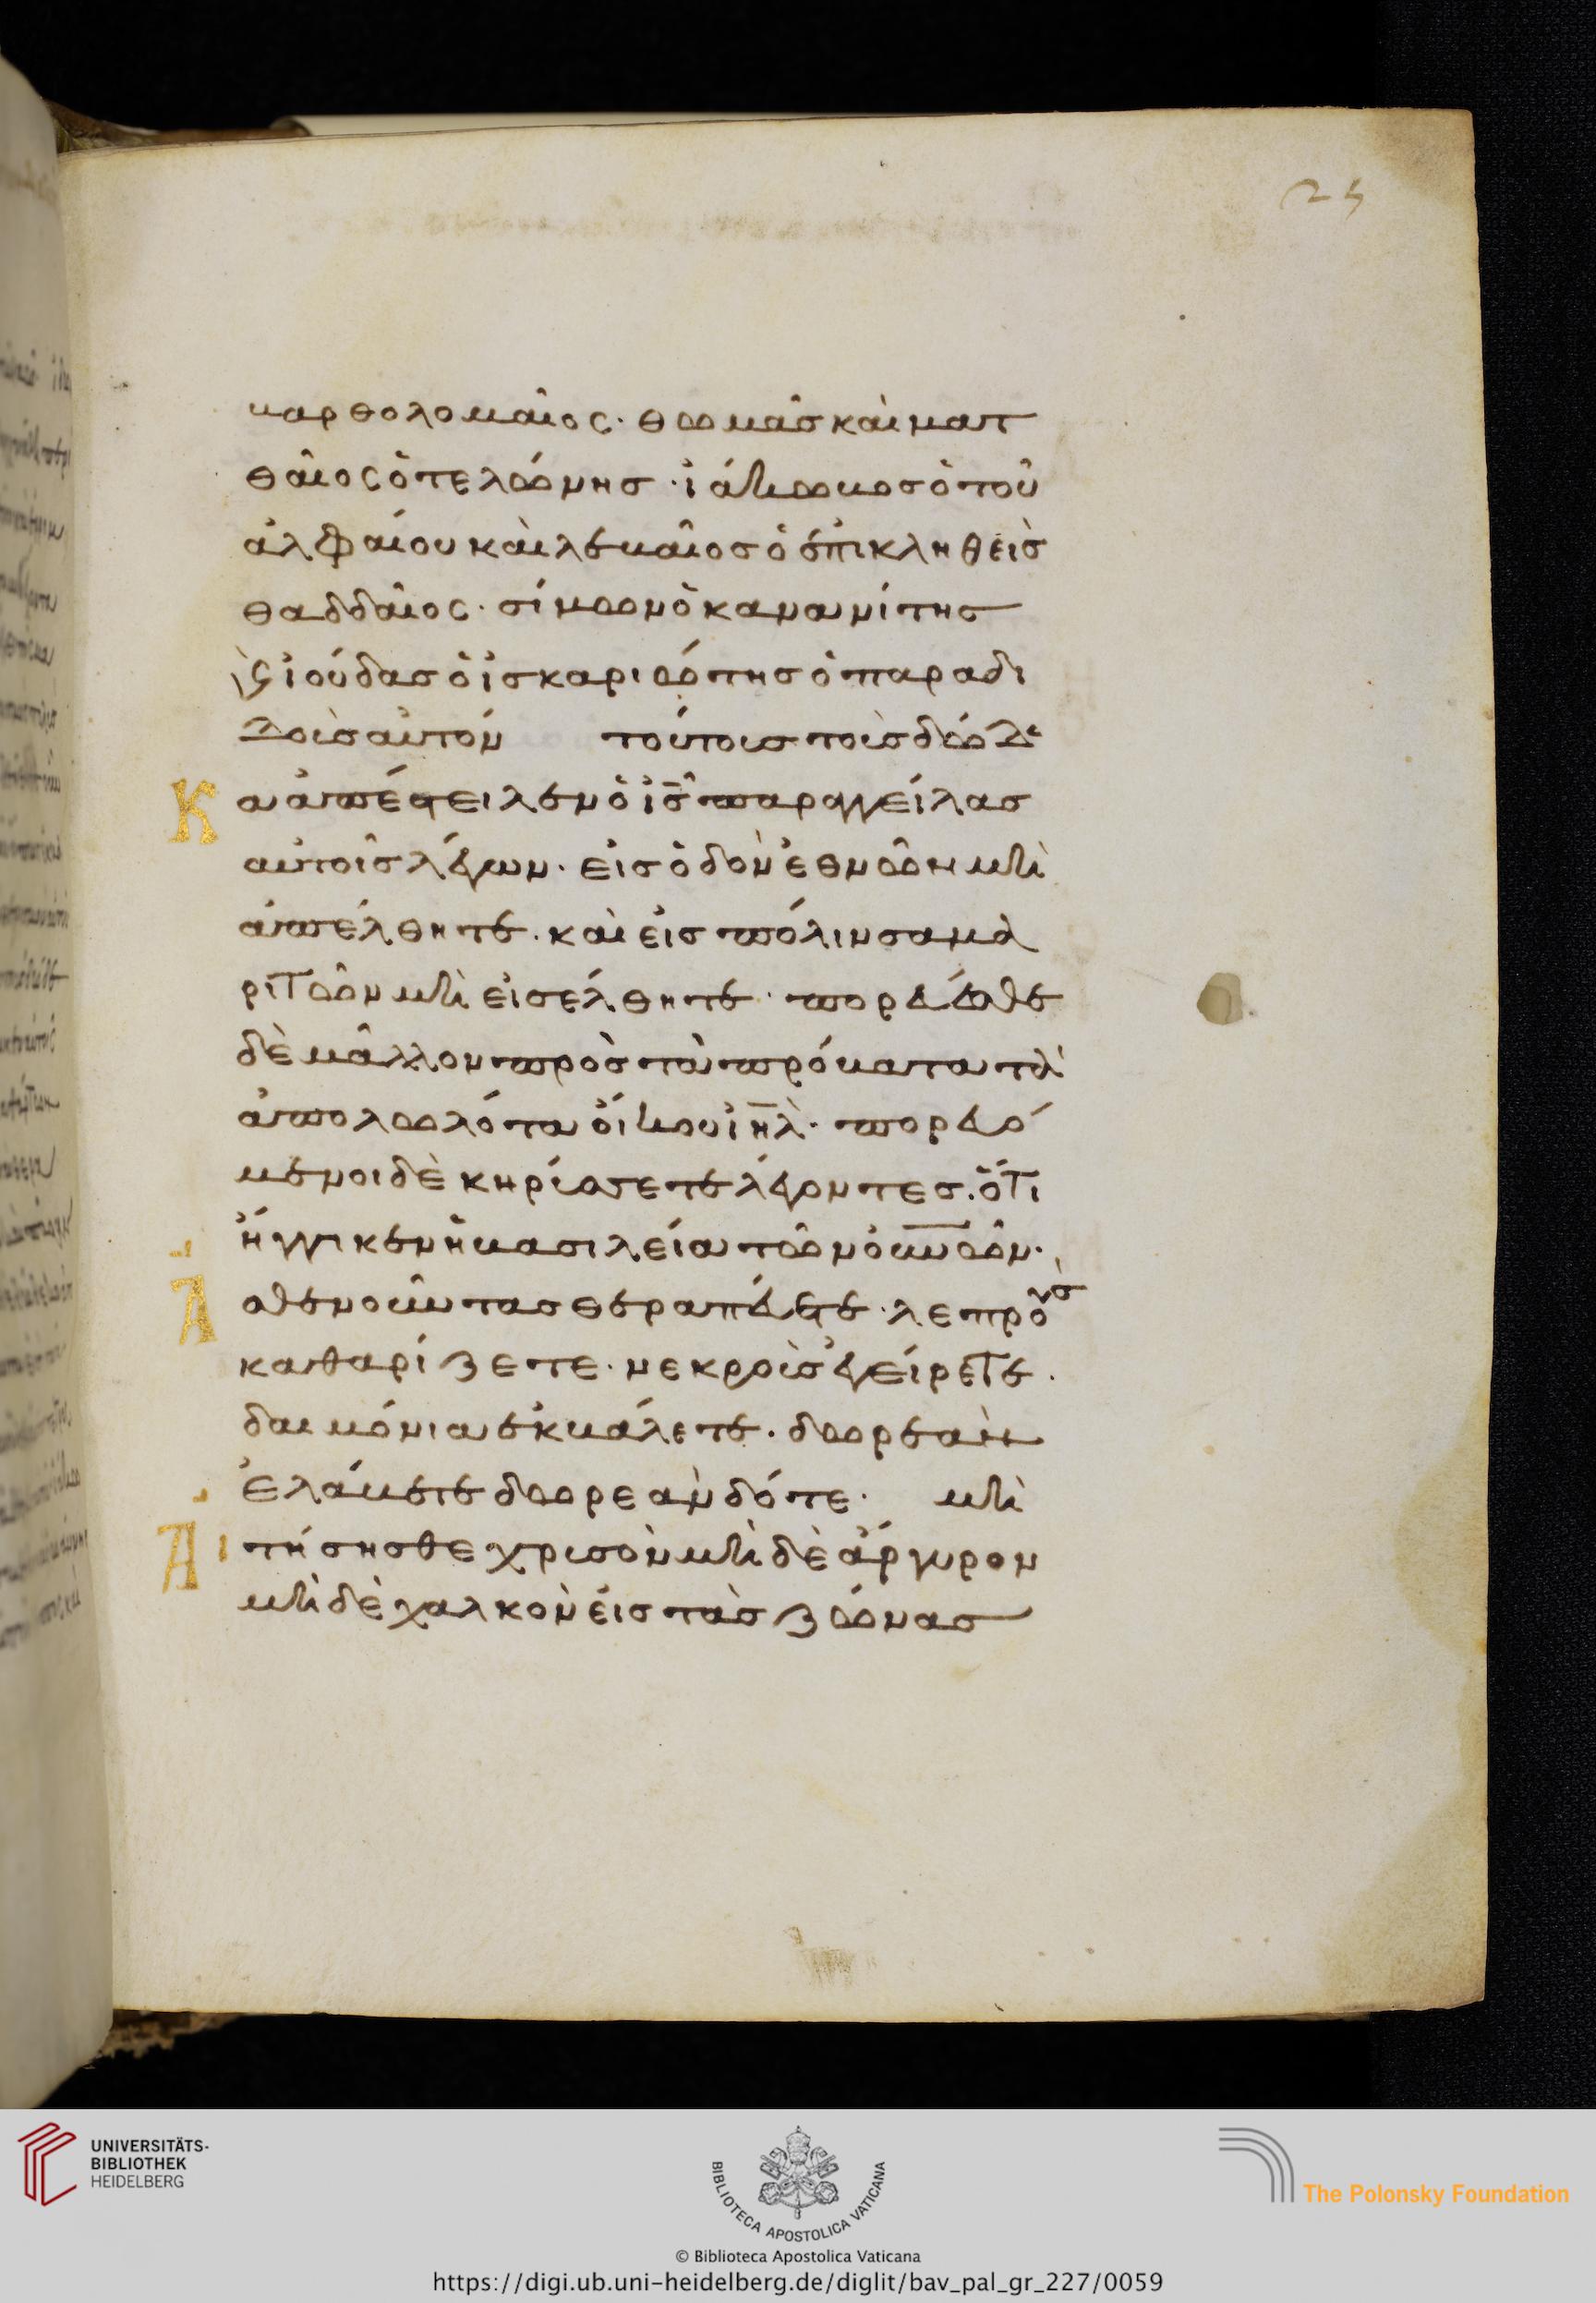 25
βαρθολομαῖος· θωμᾶς καὶ ματ
θαῖος ὁ τελώνης· ἰάκωβος ὁ τοῦ
ἀλφαίου καὶ λεβαῖος ὁ ἐπικληθεὶς
θαδδαῖος· σίμων ὁ κανανίτης
ϗ ἰούδας ὁ ἰσκαριώτης ὁ παραδι
δοὺς αὐτόν τούτους τοὺς δώδε
κα ἀπέστειλεν ὁ ις παραγγείλας
αὐτοῖς λέγων· εἰς ὁδὸν ἐθνῶν μὴ
ἀπέλθητε· καὶ εἰς πόλιν σαμα
ριτῶν μὴ εἰσέλθητε· πορεύεσθε
δὲ μᾶλλον πρὸς τὰ πρόβατα τὰ
ἀπολωλότα οἴκου ιηλ· πορευό
μενοι δὲ κηρύσσετε λέγοντες· ὅτι
ἤγγικεν ἡ βασιλεία τῶν ουνων·
ἀσθενοῦντας θεραπεύετε· λεπροὺς
καθαρίζετε· νεκροὺς ἐγείρετε·
δαιμόνια ἐκβάλετε· δωρεὰν
ἐλάβετε δωρεὰν δότε· μὴ
κτήσησθε χρυσὸν μὴ δὲ ἄργυρον
μὴ δὲ χαλκὸν εἰς τὰς ζώνας
UNIVERSITÄTS-
BIBLIOTHEK
HEIDELBERG
BIBLIOTECA APOSTOLICA VATICANA
The Polonsky Foundation
© Biblioteca Apostolica Vaticana
https://digi.ub.uni-heidelberg.de/diglit/bav_pal_gr_227/0059